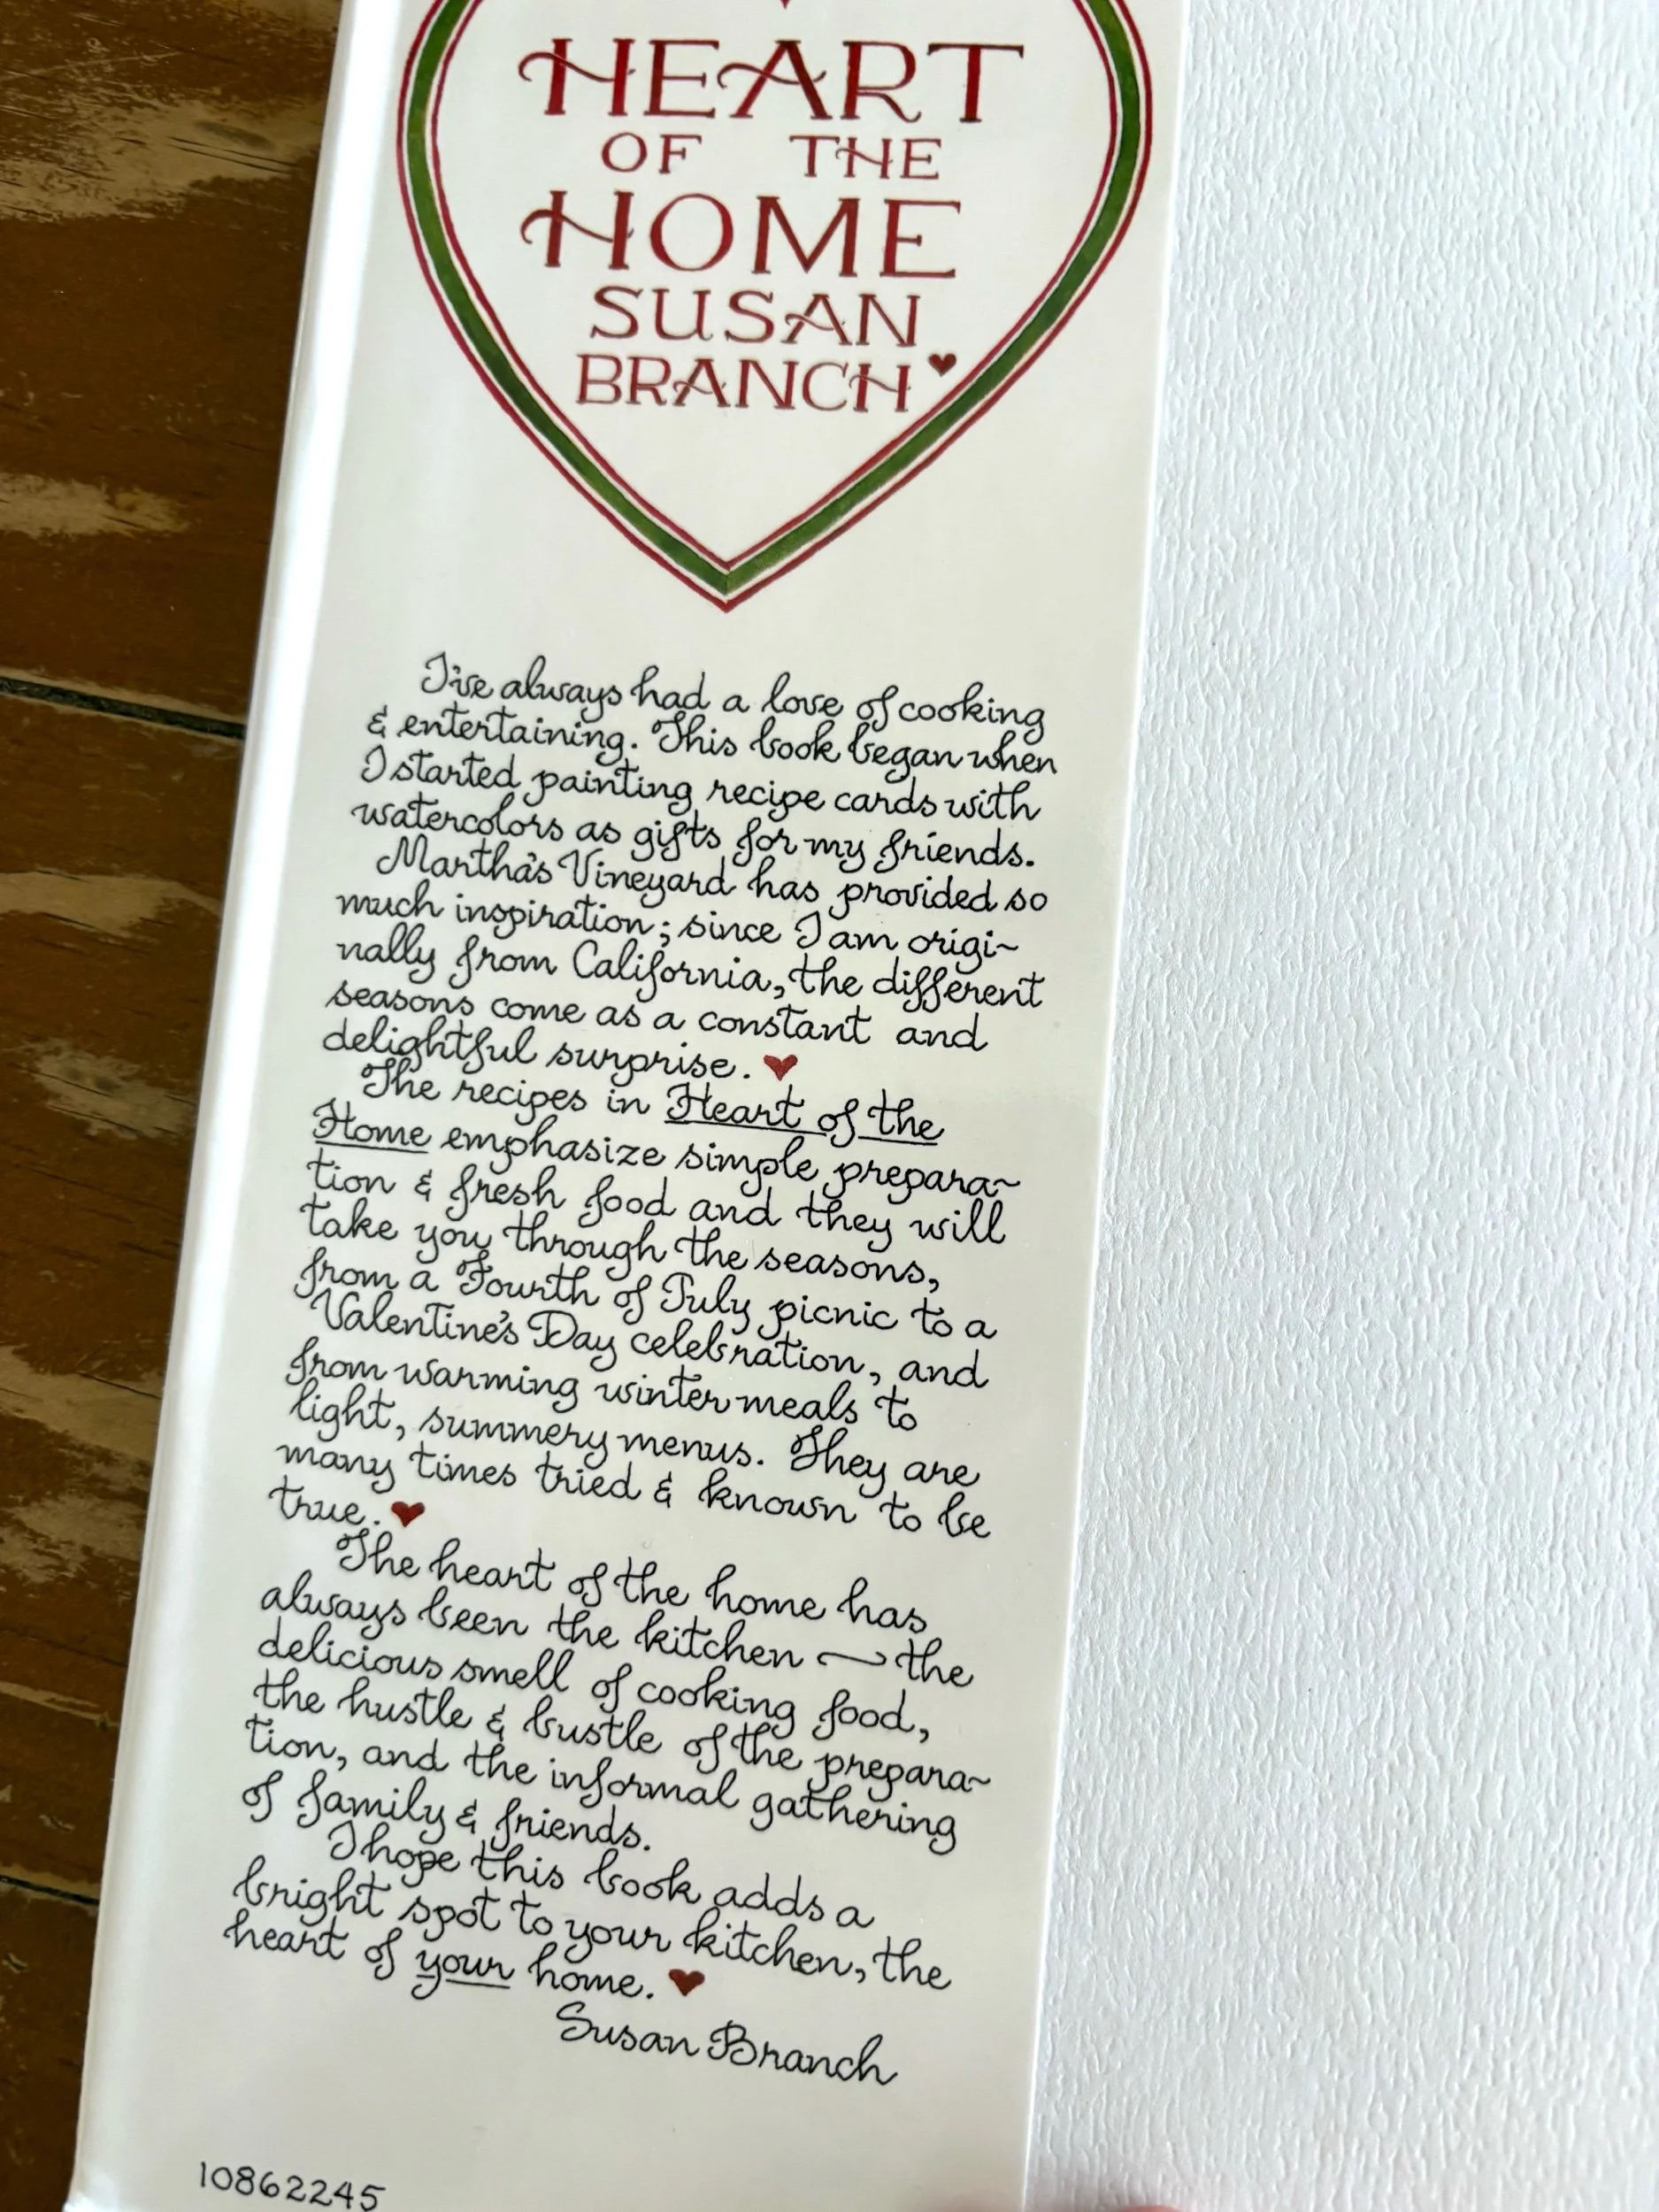 HEART
OF THE
HOME
SUSAN
BRANCH
I've always had a love of cooking
& entertaining. This book began when
I started painting recipe cards with
watercolors as gifts for my friends.
Martha's Vineyard has provided so
much inspiration; since I am origi~
nally from California, the different
seasons come as a constant and
delightful surprise. ♥
The recipes in Heart of the
Home emphasize simple prepara~
tion & fresh food and they will
take you through the seasons,
from a Fourth of July picnic to a
Valentine's Day celebration, and
from warming winter meals to
light, summery menus. They are
many times tried & known to be
true. ♥
The heart of the home has
always been the kitchen — the
delicious smell of cooking food,
the hustle & bustle of the prepara~
tion, and the informal gathering
of family & friends.
I hope this book adds a
bright spot to your kitchen, the
heart of your home. ♥
Susan Branch
10862245